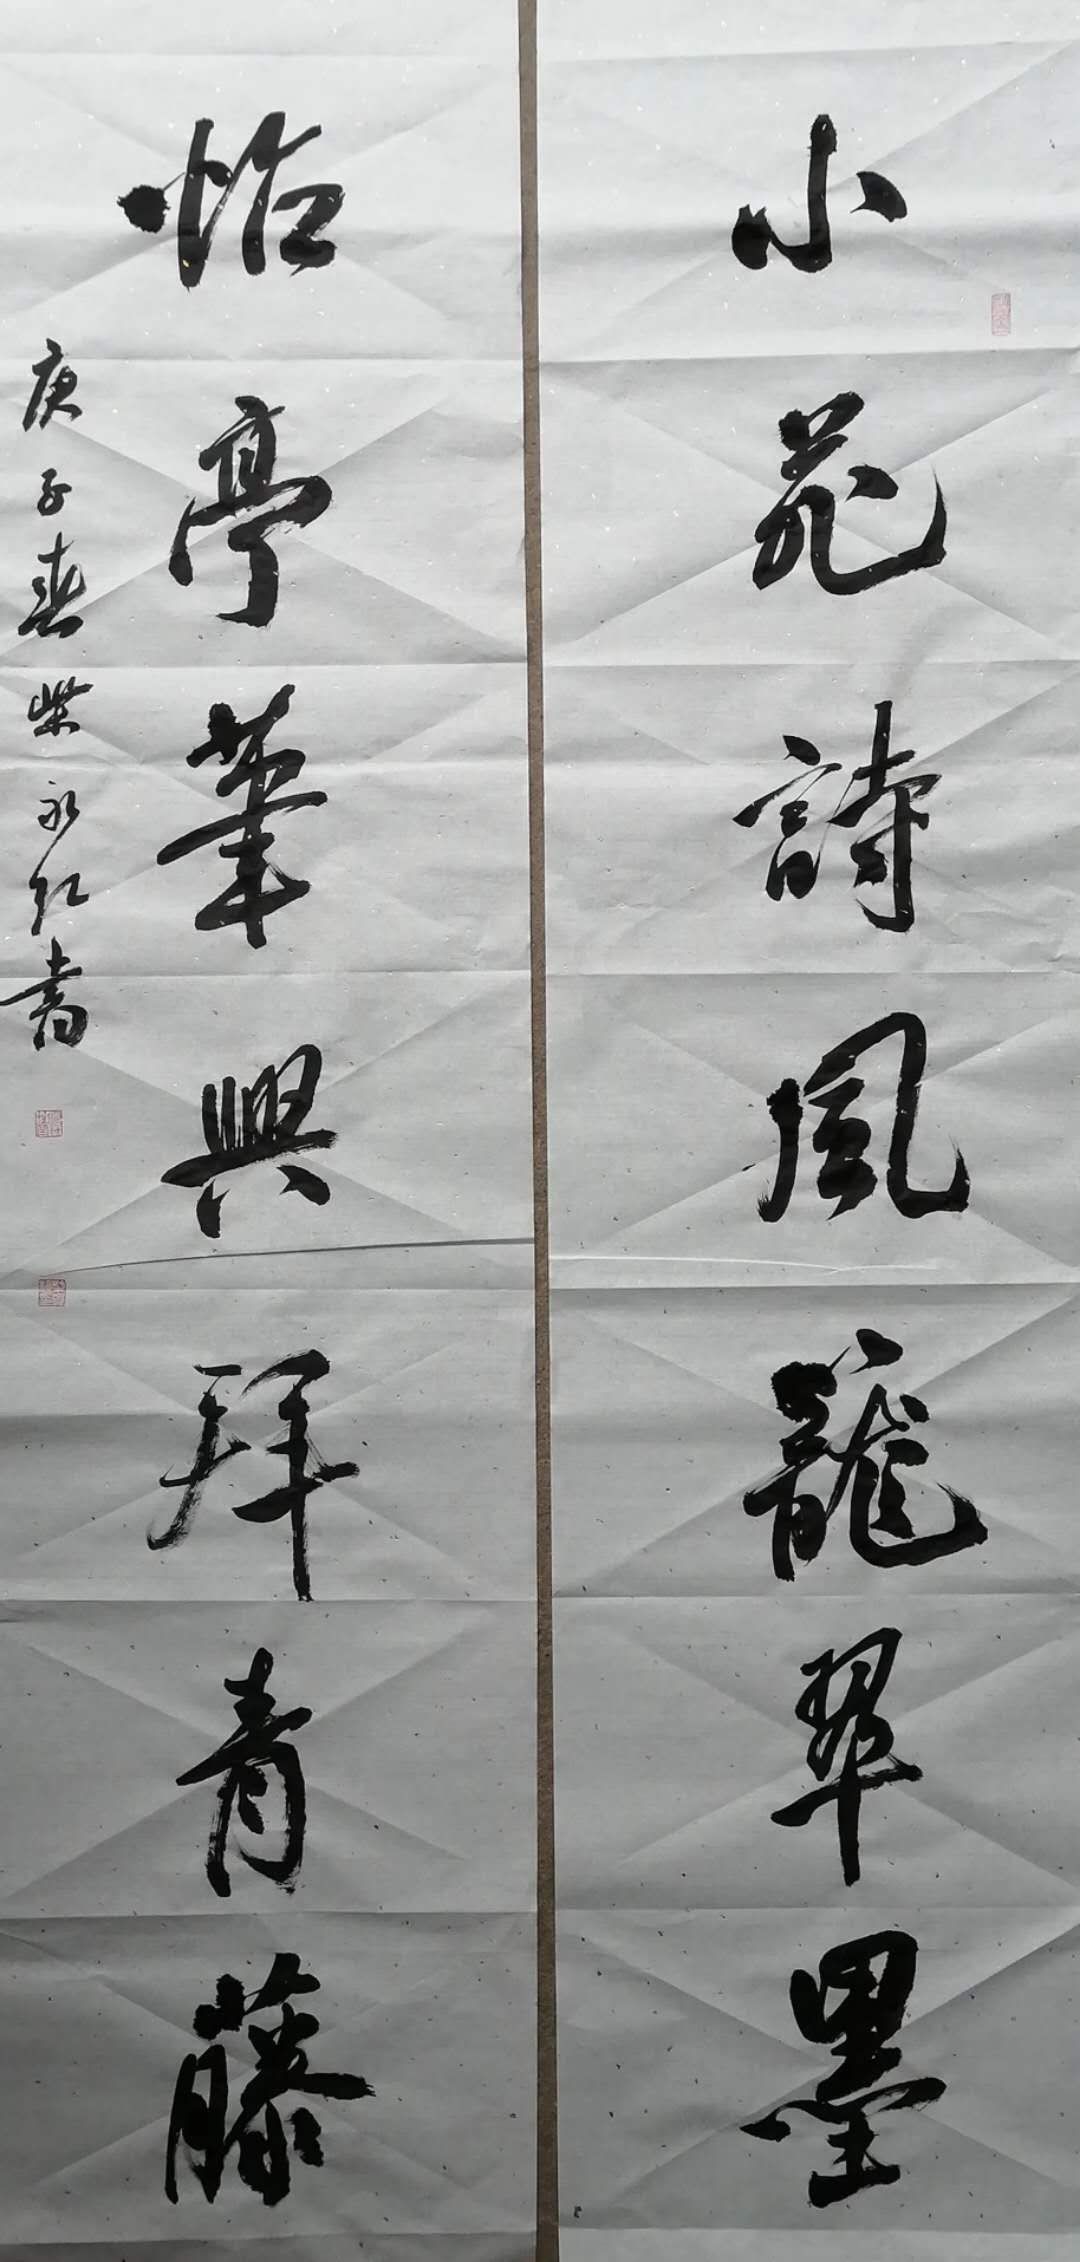 小苑詩風籠翠墨
怡亭筆興拜青藤
庚子春柴永红書